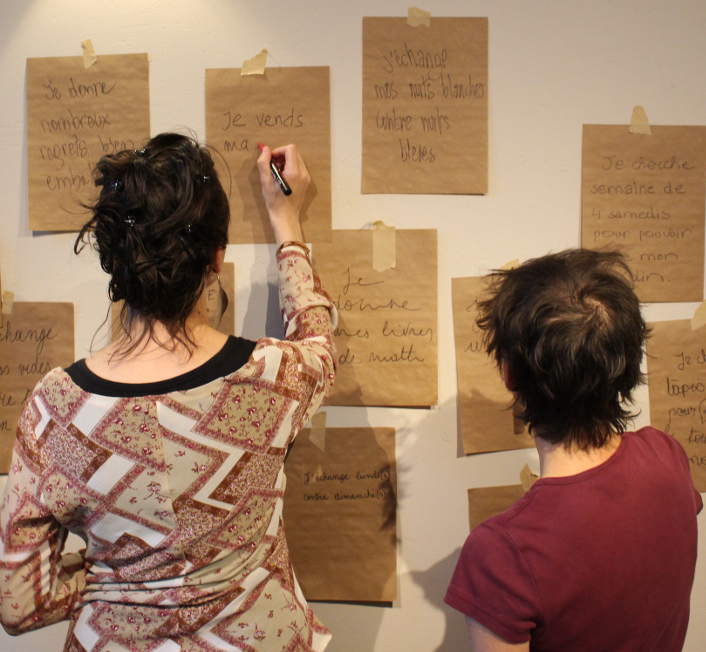 Je donne
nombreux
regrets bien
emba
Je vends
ma
j'échange
mes nuits blanches
contre nuits
bleues
Je cherche
semaine de
4 samedis
pour pouvoir
mon
Je
donne
mes livres
de maths
échange
vides
J'échange lundi(s)
contre dimanche(s)
pour